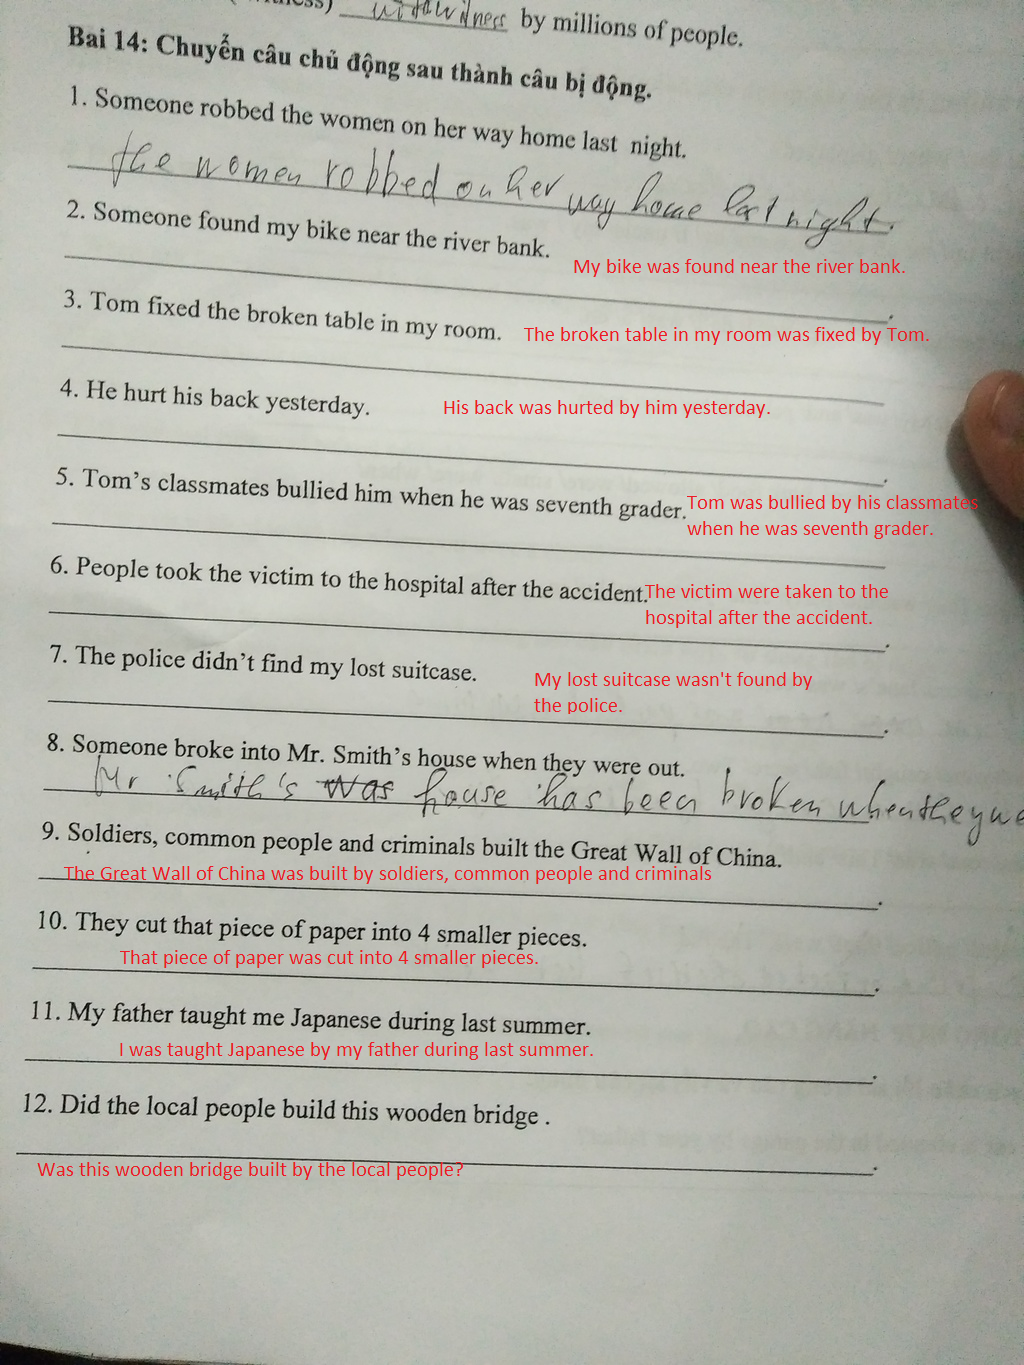 by millions of people.
Bai 14: Chuyển câu chủ động sau thành câu bị động.
1. Someone robbed the women on her way home last night.
the women robbed on her way home last night.
2. Someone found my bike near the river bank.
My bike was found near the river bank.
3. Tom fixed the broken table in my room.
The broken table in my room was fixed by Tom.
4. He hurt his back yesterday.
His back was hurted by him yesterday.
5. Tom’s classmates bullied him when he was seventh grader.
Tom was bullied by his classmates
when he was seventh grader.
6. People took the victim to the hospital after the accident.
The victim were taken to the
hospital after the accident.
7. The police didn’t find my lost suitcase.
My lost suitcase wasn't found by
the police.
8. Someone broke into Mr. Smith’s house when they were out.
Mr Smith's was house has been broken when they we
9. Soldiers, common people and criminals built the Great Wall of China.
The Great Wall of China was built by soldiers, common people and criminals
10. They cut that piece of paper into 4 smaller pieces.
That piece of paper was cut into 4 smaller pieces.
11. My father taught me Japanese during last summer.
I was taught Japanese by my father during last summer.
12. Did the local people build this wooden bridge .
Was this wooden bridge built by the local people?